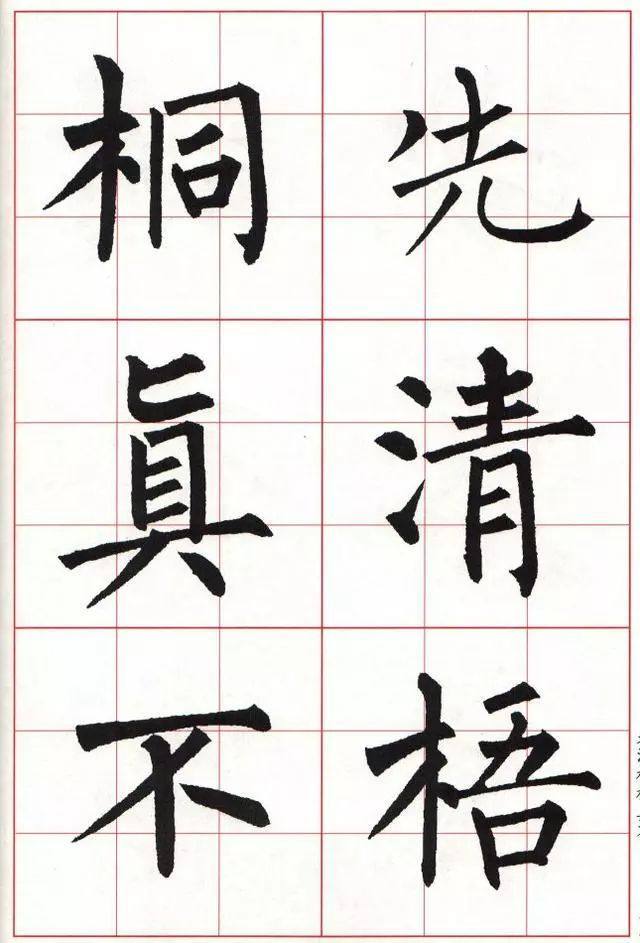 先清梧
桐眞不